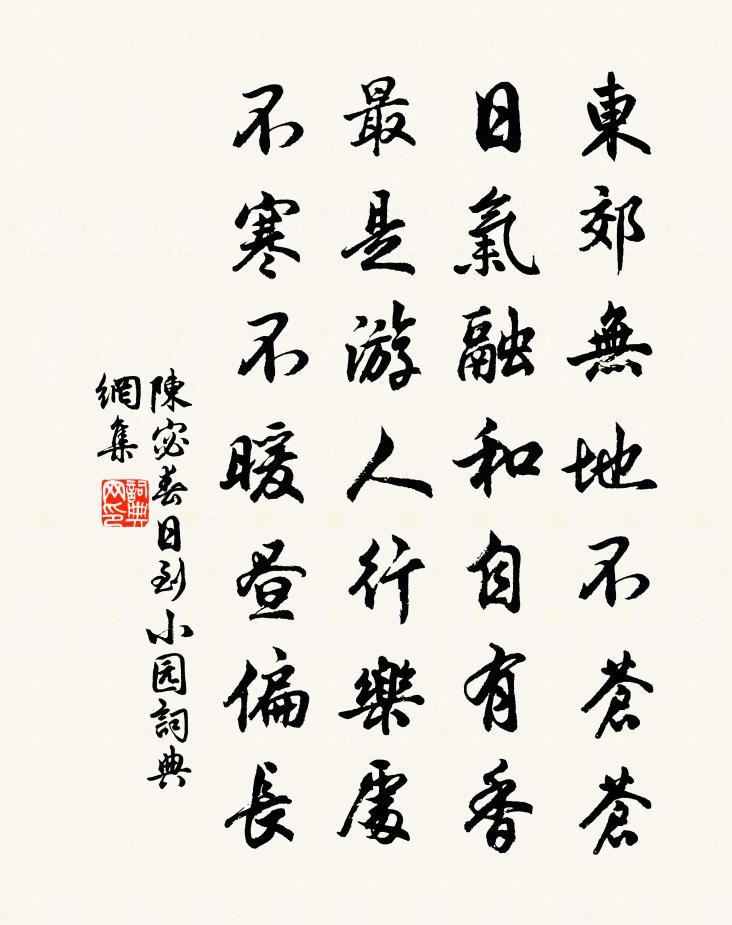 東郊無地不蒼蒼
日氣融和自有香
最是游人行樂處
不寒不暖昼偏長
陳宓春日到小园詞典
網集
詞典网印